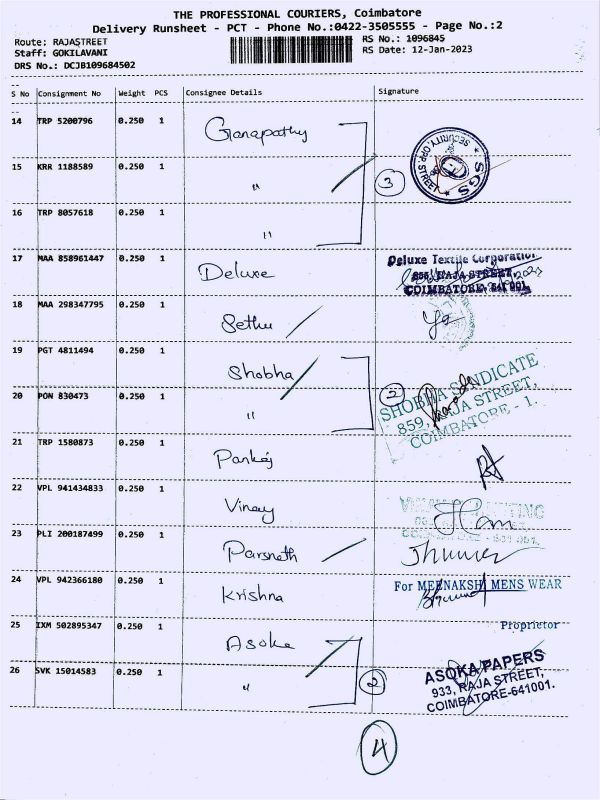 THE PROFESSIONAL COURIERS, Coimbatore
Delivery Runsheet - PCT - Phone No.:0422-3505555 - Page No.:2
Route: RAJASTREET
RS No.: 1096845
Staff: GOKILAVANI
RS Date: 12-Jan-2023
DRS No.: DCJB109684502
S No Consignment No Weight PCS Consignee Details Signature
14 TRP 5200796 0.250 1 Ganapathy
15 KRR 1188589 0.250 1 "
3
SECURITY, OPP. STREET
SGS
16 TRP 8057618 0.250 1 "
17 MAA 858961447 0.250 1 Deluxe
Deluxe Textile Corporation
855, RAJA STREET
COIMBATORE-641 001.
18 MAA 298347795 0.250 1 Sethu
19 PGT 4811494 0.250 1 Shobha
20 PON 830473 0.250 1 "
2
SHOBHA SYNDICATE
859, RAJA STREET,
COIMBATORE - 1.
21 TRP 1580873 0.250 1 Pankaj
22 VPL 941434833 0.250 1 Vinay
23 PLI 200187499 0.250 1 Parsneth
24 VPL 942366180 0.250 1 Krishna
For MEENAKSHI MENS WEAR
Proprietor
25 IXM 502895347 0.250 1 Asoka
26 SVK 15014583 0.250 1 "
2
ASOKA PAPERS
933, RAJA STREET,
COIMBATORE-641001.
4